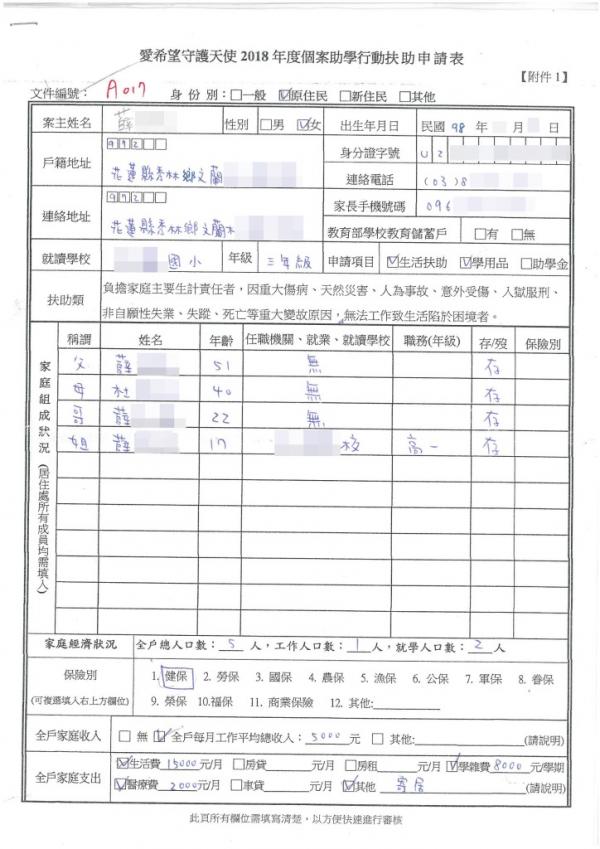 愛希望守護天使 2018 年度個案助學行動扶助申請表
【附件 1】
文件編號： A017 身份別：□一般 ☑原住民 □新住民 □其他
案主姓名 薛 性別 □男 ☑女 出生年月日 民國 98 年 月 日
戶籍地址 972 花蓮縣秀林鄉文蘭 身分證字號 U2
連絡電話 (03)8
連絡地址 972 花蓮縣秀林鄉文蘭村 家長手機號碼 096
教育部學校教育儲蓄戶 □有 □無
就讀學校 國小 年級 三年級 申請項目 ☑生活扶助 ☑學用品 □助學金
扶助類 負擔家庭主要生計責任者，因重大傷病、天然災害、人為事故、意外受傷、入獄服刑、
非自願性失業、失蹤、死亡等重大變故原因，無法工作致生活陷於困境者。
家庭組成狀況（居住處所有成員均需填入）
稱謂 姓名 年齡 任職機關、就業、就讀學校 職務(年級) 存/歿 保險別
父 薛 51 無 存
母 杜 40 無 存
哥 薛 22 無 存
姐 薛 17 校 高一 存
家庭經濟狀況 全戶總人口數： 5 人，工作人口數： 1 人，就學人口數： 2 人
保險別 1. 健保 2. 勞保 3. 國保 4. 農保 5. 漁保 6. 公保 7. 軍保 8. 眷保
(可複選填入右上方欄位) 9. 榮保 10.福保 11. 商業保險 12. 其他:
全戶家庭收入 □ 無 ☑ 全戶每月工作平均總收入： 5000 元 □ 其他: (請說明)
全戶家庭支出 ☑生活費 15000 元/月 □房貸 元/月 □房租 元/月 ☑學雜費 8000 元/學期
☑醫療費 2000 元/月 □車貸 元/月 ☑其他 寄居 (請說明)
此頁所有欄位需填寫清楚，以方便快速進行審核